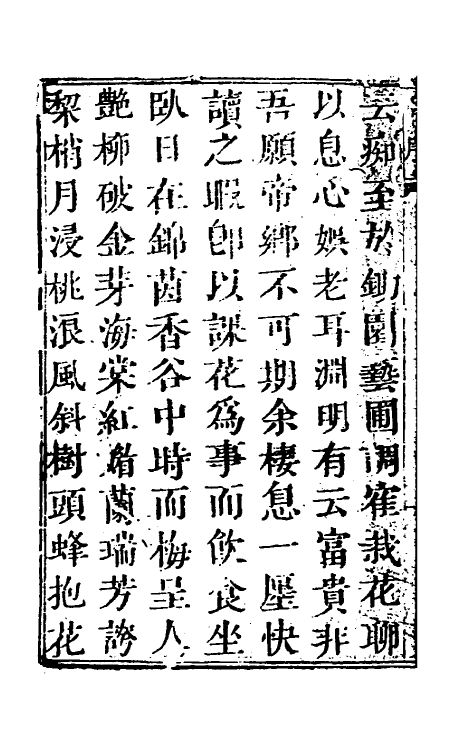 云癡至於鋤園藝圃調寉栽花聊
以息心娛老耳淵明有云富貴非
吾願帝鄉不可期余棲息一廛快
讀之暇卽以課花爲事而飲食坐
臥日在錦茵香谷中時而梅呈人
艷柳破金芽海棠紅蘭瑞芳誇
棃梢月浸桃浪風斜樹頭蜂抱花